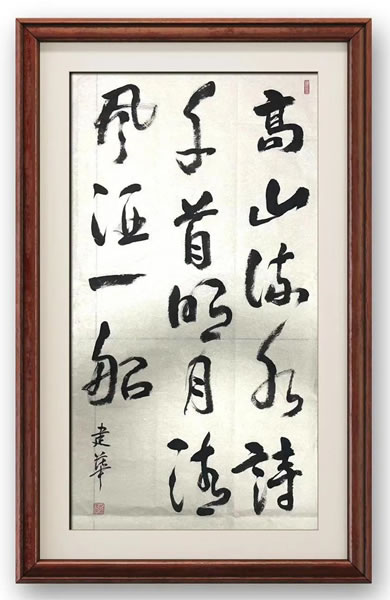 高山流水詩
千首明月清
風酒一船
建華